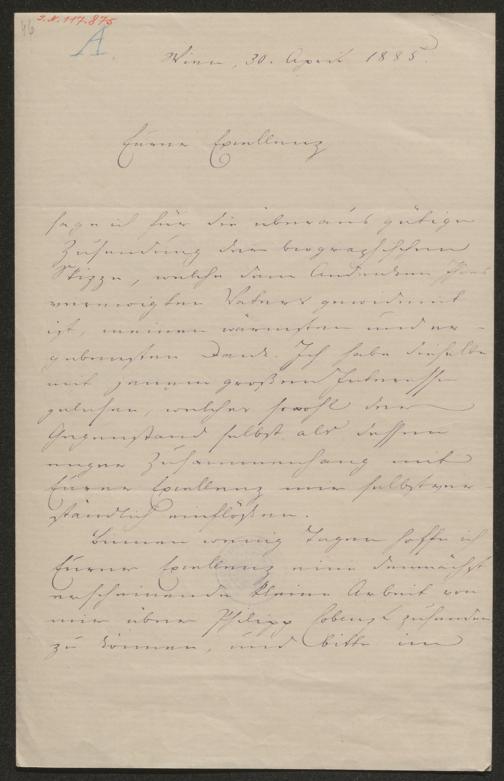 46
J.N. 117.875
A.
Wien, 30. April 1885.
Eurer Excellenz
sage ich für die überaus gütige
Zusendung der biographischen
Skizze, welche dem Andenken Ihres
verewigten Vaters gewidmet
ist, meinen wärmsten und er-
gebensten Dank. Ich habe dieselbe
mit jenem großen Interesse
gelesen, welches sowohl der
Gegenstand selbst als dessen
enger Zusammenhang mit
Eurer Excellenz mir selbstver
ständlich einflößen.
Binnen wenig Tagen hoffe ich
Eurer Excellenz eine demnächst
erscheinende kleine Arbeit von
mir über Philipp Cobenzl zusenden
zu können, und bitte im